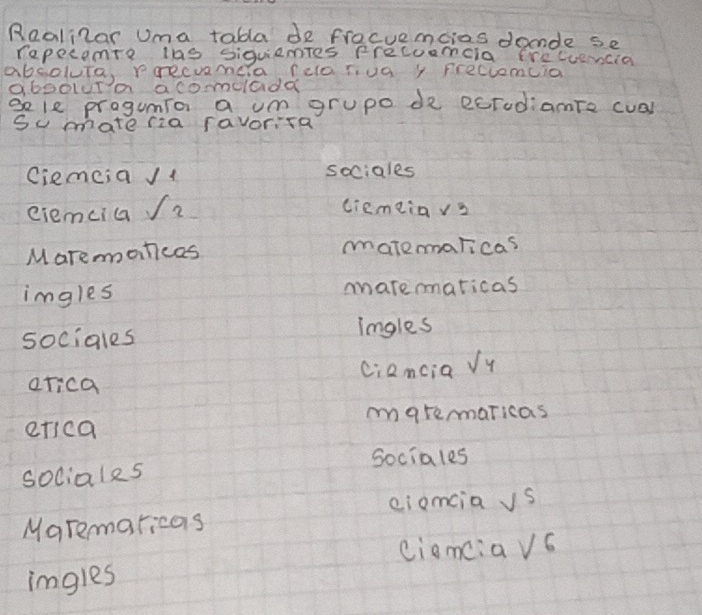 Realizar uma tabla de fracuemcias domde se
rapecemte las siguiemtes frecuemcia frecuencia
absoluta, frecuemcia relativa y frecuemcia
absoluta acomolada
se le progumta a um grupo de estudiamte cual
su matercia favorita
Ciemcia √1
ciemcia √2
Matematicas
imgles
sociales
etica
etica
sociales
Matematicas
imgles
sociales
ciemcia √3
matematicas
matematicas
imgles
ciemcia √4
matematicas
sociales
ciemcia √5
ciemcia √6